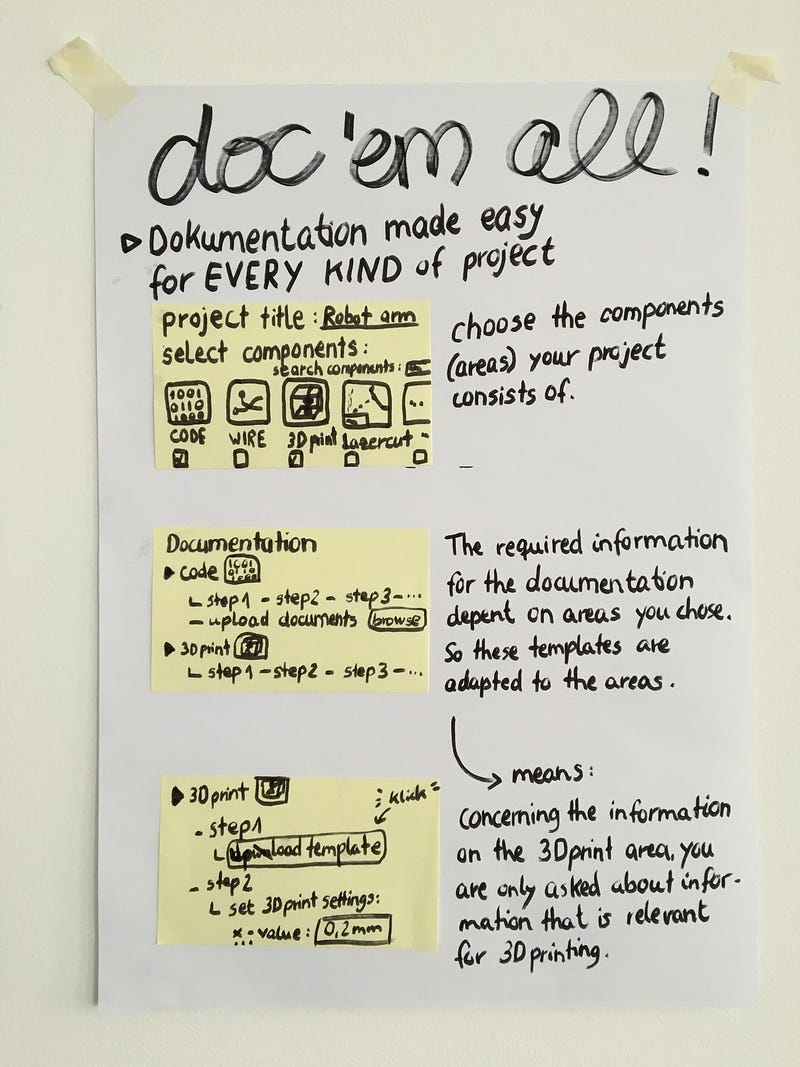 doc 'em all!
Dokumentation made easy
for EVERY KIND of project
project title: Robot arm
select components:
search components:
CODE WIRE 3D print Lasercut
choose the components
(areas) your project
consists of.
Documentation
code
step1 - step2 - step3 - ...
- upload documents browse
3D print
step1 - step2 - step3 - ...
The required information
for the documentation
depent on areas you chose.
So these templates are
adapted to the areas.
means:
3D print
klick
- step1
template
- step2
set 3D print settings:
value: 0,2mm
concerning the information
on the 3D print area, you
are only asked about infor-
mation that is relevant
for 3D printing.